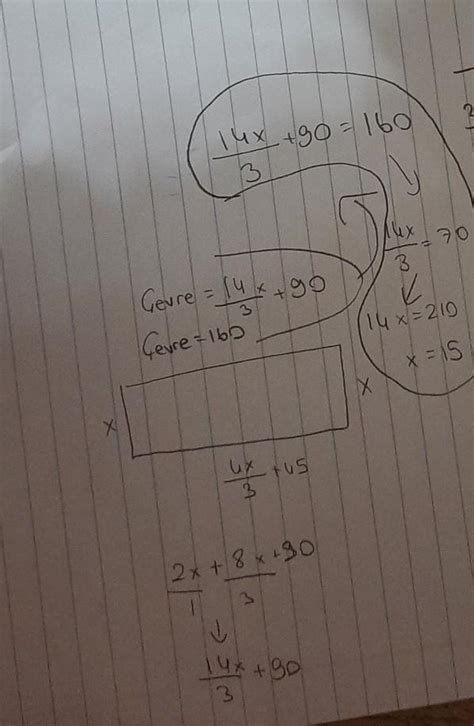 14x/3 + 90 = 160
14x/3 = 70
14x = 210
x = 15
Çevre = 14x/3 + 90
Çevre = 160
x
x
4x/3 + 45
2x/1 + 8x/3 + 90
14x/3 + 90